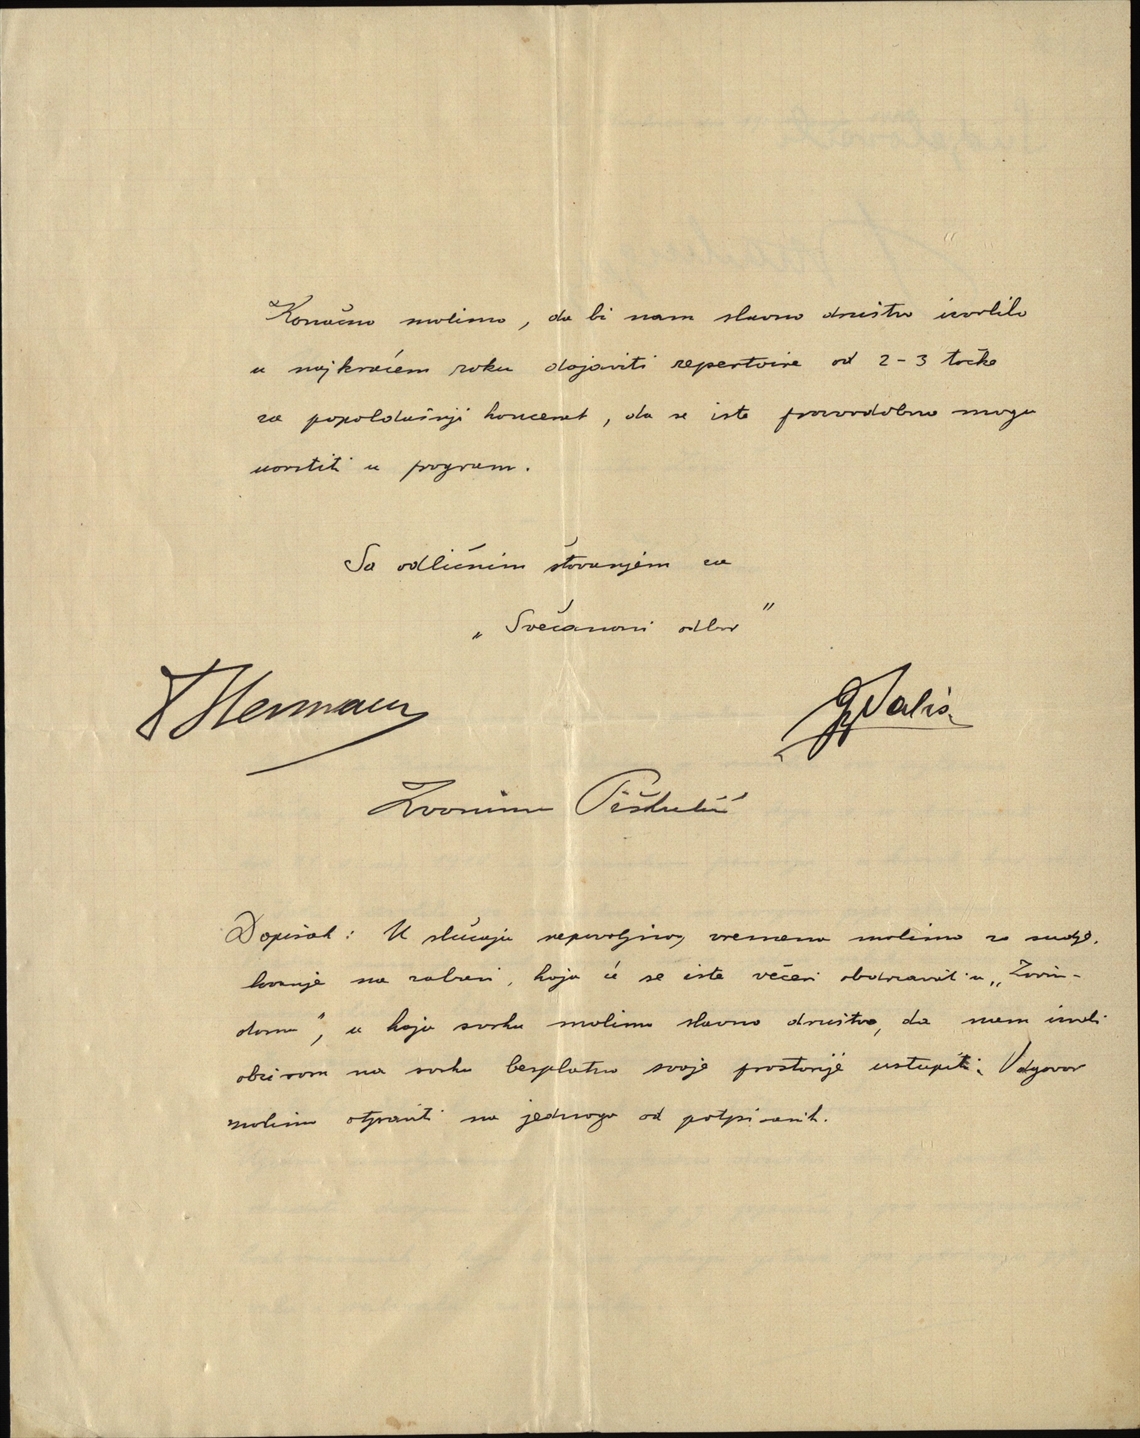 Konačno molimo, da bi nam slavno društvo izvolilo
u najkraćem roku dojaviti repertoire od 2-3 točke
za popoldašnji koncerat, da se iste pravodobno mogu
uvrstiti u program.
Sa odličnim štovanjem za
„Svečanoni odbor"
Hermann
Valis
Zvonimir Piškulić
Dopisak: U slučaju nepovoljnog vremena molimo za sudje-
lovanje na zabavi, koja će se iste večeri obdržavati u „Zorin-
domu", u koju svrhu molimo slavno društvo, da nam imali
obzirom na svrhu besplatno svoje prostorije ustupiti. Odgovor
molimo otpraviti na jednoga od potpisanih.